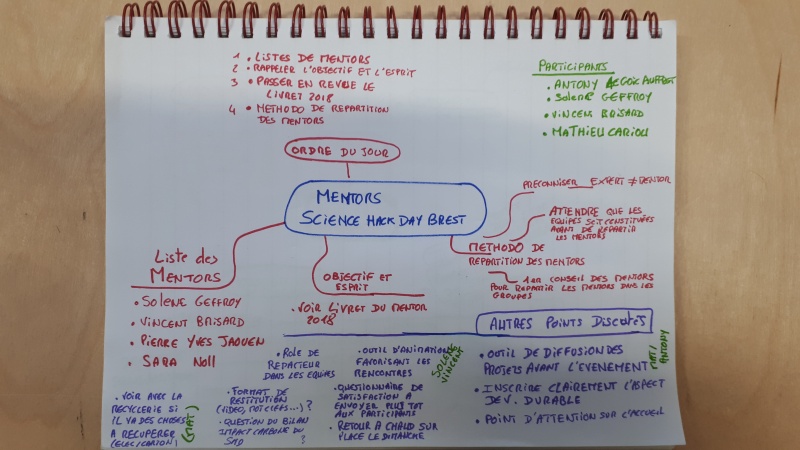 1 • LISTES DE MENTORS
2 • RAPPELER L'OBJECTIF ET L'ESPRIT
3 • PASSER EN REVUE LE
LIVRET 2018
4 • METHODO DE REPARTITION
DES MENTORS
ORDRE DU JOUR
PARTICIPANTS
• ANTONY LE GOIC AUFFRET
• SOLENE GEFFROY
• VINCENT BRISARD
• MATHIEU CARIOU
MENTORS
SCIENCE HACK DAY BREST
PRECONNISER EXPERT ≠ MENTOR
ATTENDRE QUE LES
EQUIPES SOIT CONSTITUÉES
AVANT DE REPARTIR
LES MENTORS
METHODO DE
REPARTITION DES MENTORS
1ER CONSEIL DES MENTORS
POUR REPARTIR LES MENTORS DANS LES
GROUPES
Liste des
MENTORS
• SOLENE GEFFROY
• VINCENT BRISARD
• PIERRE YVES JAOUEN
• SARA NOLL
OBJECTIF ET
ESPRIT
• VOIR LIVRET DU MENTOR
2018
AUTRES POINTS DISCUTÉS
• OUTIL DE DIFFUSION DES
PROJETS AVANT L'EVENEMENT
MAT/
ANTONY
• INSCRIRE CLAIREMENT L'ASPECT
DEV. DURABLE
• POINT D'ATTENTION SUR L'ACCUEIL
• OUTIL D'ANIMATIONS
FAVORISANT LES
RENCONTRES
SOLENE
VINCENT
• QUESTIONNAIRE DE
SATISFACTION A
ENVOYER PLUS TOT
AUX PARTICIPANTS
• RETOUR A CHAUD SUR
PLACE LE DIMANCHE
• ROLE DE
REDACTEUR
DANS LES EQUIPES
• FORMAT DE
RESTITUTION
(VIDEO, NOTICEFS...) ?
• QUESTION DU BILAN
IMPACT CARBONE DU
SHD ?
• VOIR AVEC LA
RECYCLERIE SI
IL Y A DES CHOSES
A RECUPERER
(ELEC/CARTON)
(MAT)